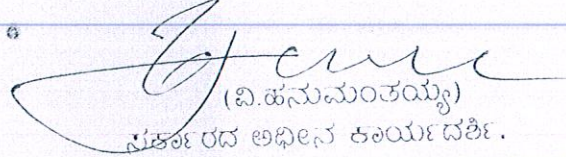 (ವಿ.ಹನುಮಂತಯ್ಯ)
ಸರ್ಕಾರದ ಅಧೀನ ಕಾರ್ಯದರ್ಶಿ.